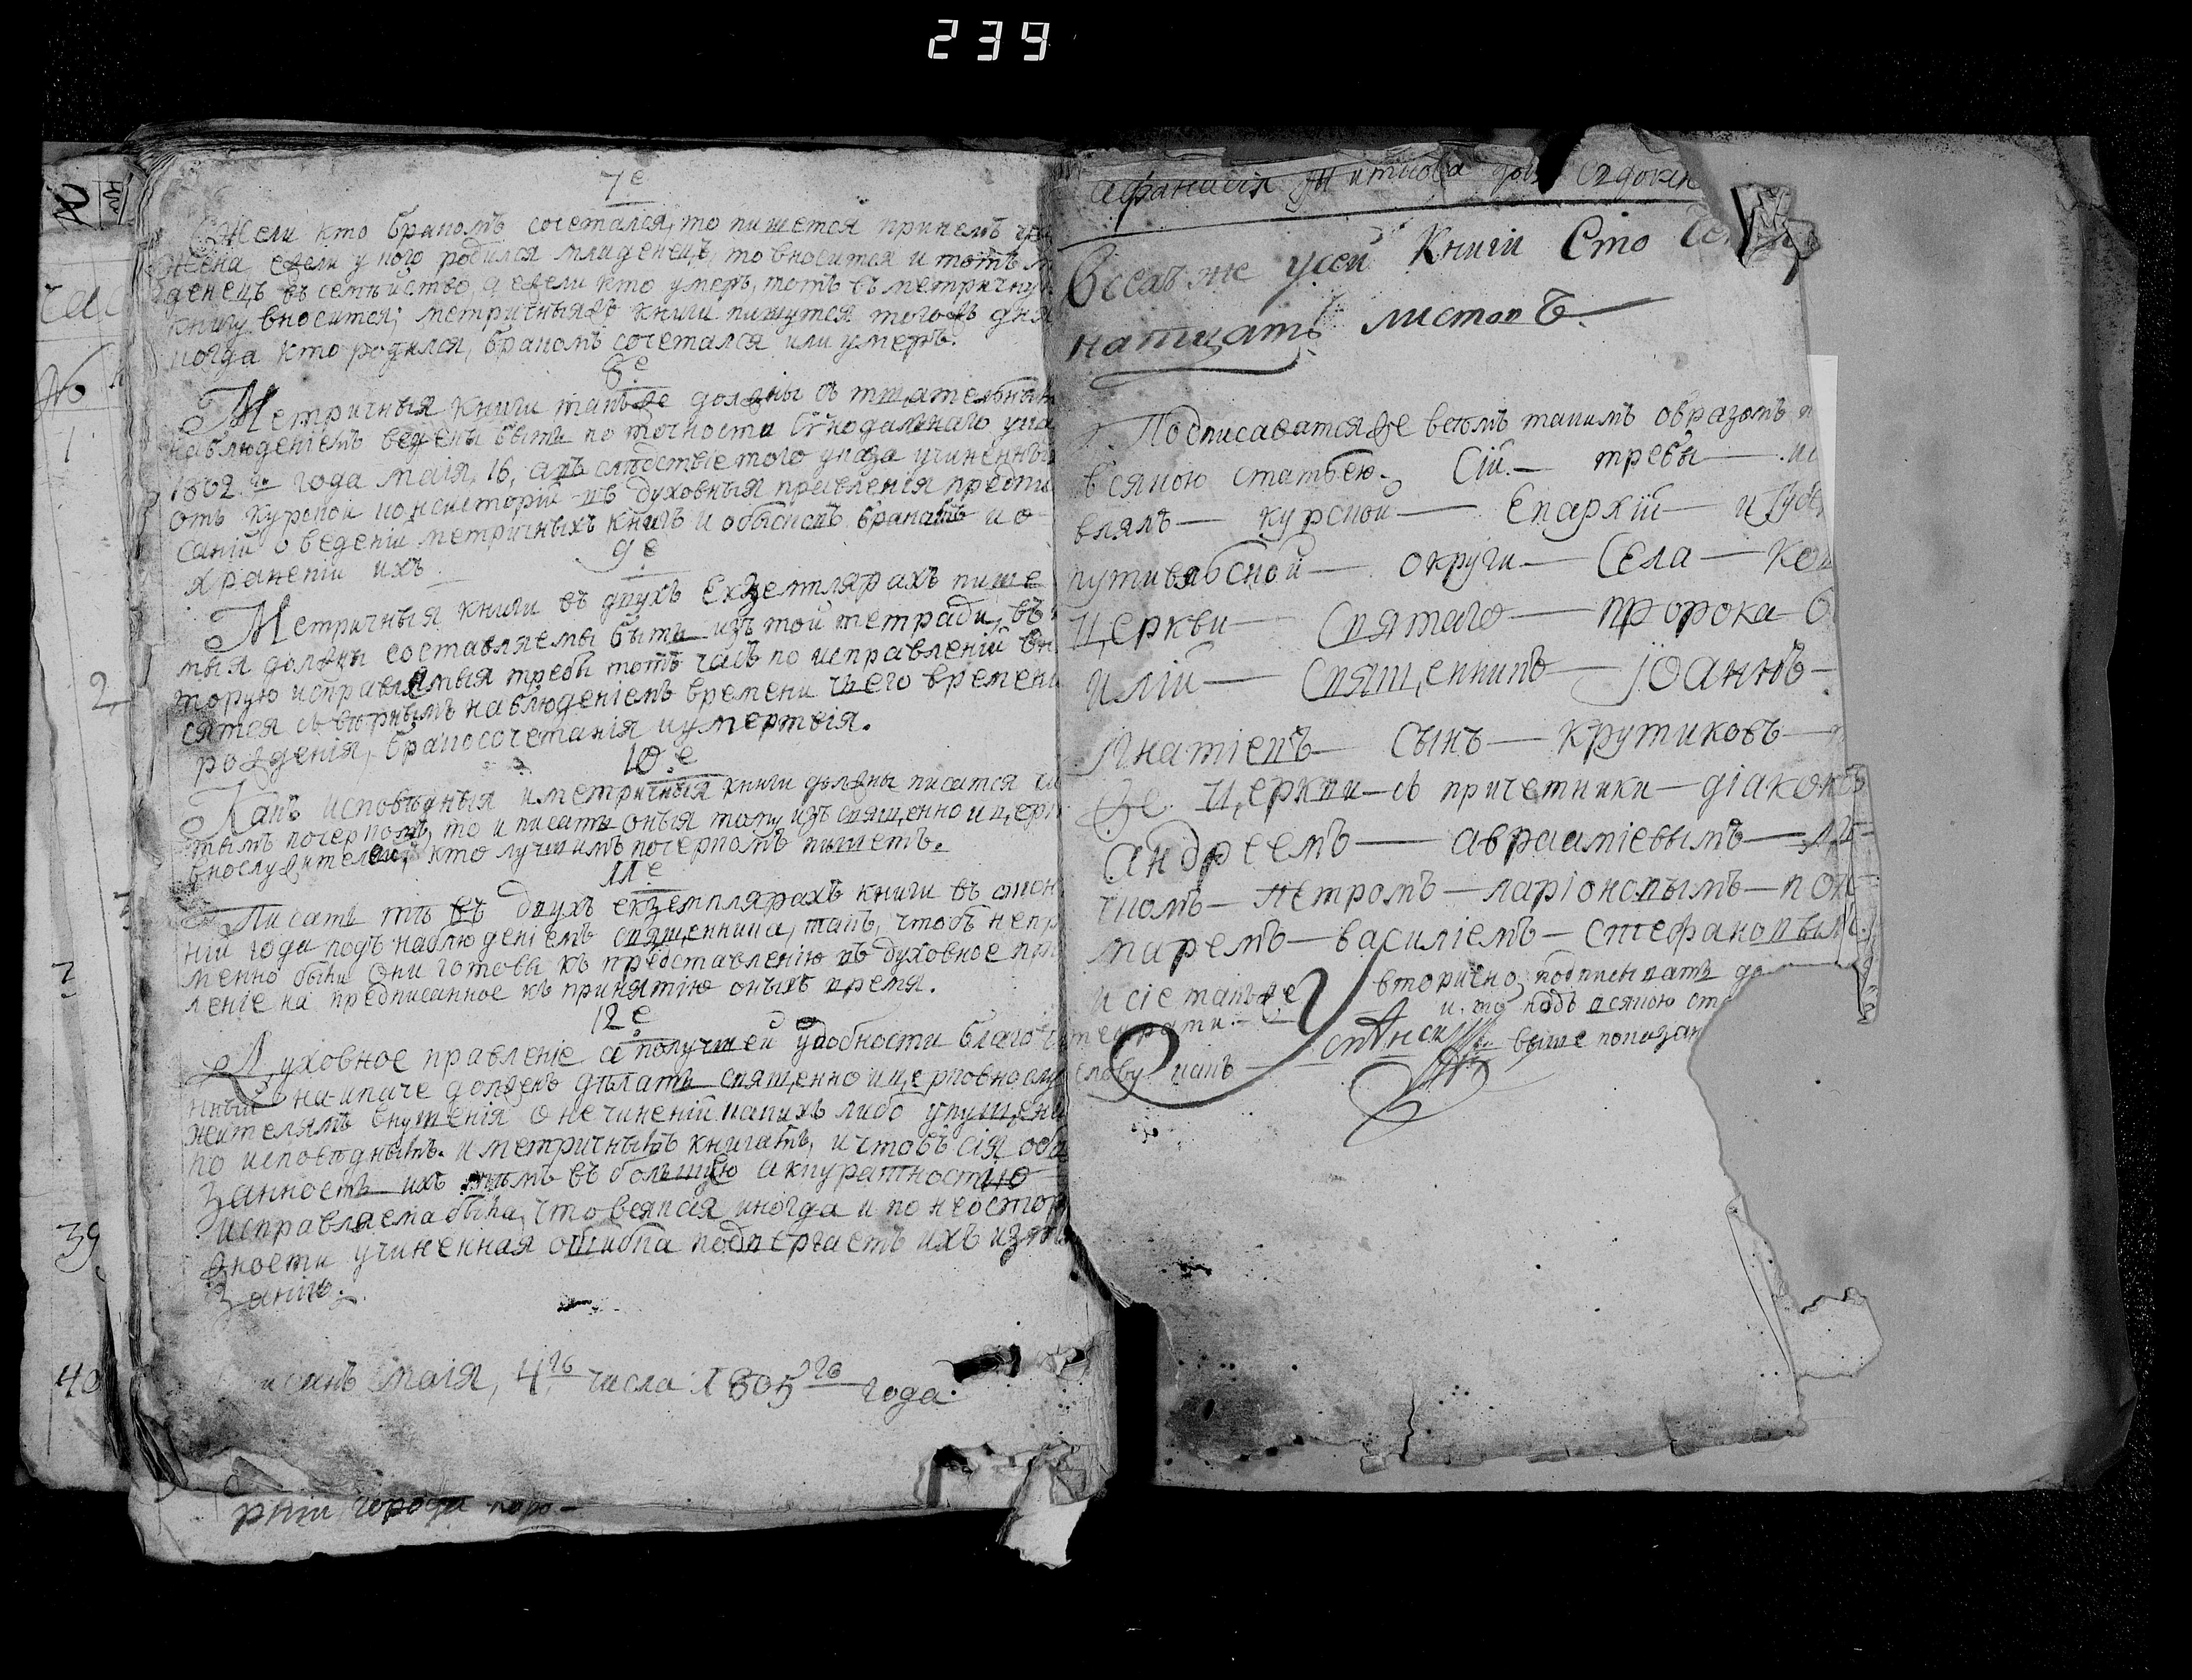 239
7е
Ежели кто бракомъ сочетался, то пишется при немъ
жена, ежели у кого родился младенецъ, то вносится и тотъ мла
денецъ въ семѣйство, а ежели кто умеръ, тотъ въ метричну
книгу вносится; метричныяжъ книги пишутся тогожъ дня
когда кто родился, бракомъ сочетался или умеръ.
8е
Метричныя книги такъже должны съ тщательным
наблюденіемъ ведены быть по точности Сѵнодальнаго ука
1802го года маія, 16, а въ слѣдствіе того указа учиненны
отъ курской консисторіи въ духовныя правленія предпи
саніи о веденіи метричныхъ книгъ и обыскъ и о
храненіи ихъ
9е
Метричныя книги въ двухъ Екземплярахъ
мыя должны составляемы быть изъ той тетради, въ
торую исправляемыя требы тотъ часъ по исправленіи
сятся съ вѣрнымъ наблюденіемъ времени времени
рожденія, бракосочетанія и умертвія.
10е
Какъ исповѣдныя и метричныя книги должны писатся
тымъ почеркомъ, то и писать оныя тому изъ священно и церк
внослужителей, кто лучшимъ почеркомъ пишетъ.
11е
Писать тѣ въ двухъ екземплярахъ книги въ окон
ніи года подъ наблюденіемъ священника, такъ, чтобъ непр
менно были они готовы къ представленію въ духовное прав
леніе на предписанное къ принятію оныхъ время.
12е
Духовное правленіе а получшей удобности благочи
нный на-иначе долженъ дѣлать священно и церковнослу
жителямъ внушенія о нечиненіи какихъ либо упущені
по исповѣднымъ и метричнымъ книгамъ, и чтобъ сія обя
занность ихъ въ большую акуратностію
исправляема была, что всякая иногда и по неостор
жности учиненная ошибка подвергаетъ ихъ
занію.
маія, 4го числа 1805го года.
рніи города
Афанасія
Всехъ же у сей Книги Сто
натцать листовъ.
Подписаватся же всемъ такимъ образомъ
всякою статьею. Сіи — требы —
влялъ — курской — Епархіи — и Губе
путивльской — округи — Села —
Церкви — Святаго — пророка —
иліи — Священникъ — Іоаннъ —
Игнатіевъ — сынъ — крутиковъ —
же Церкви — съ причетники — діакон
андреемъ — авраамiевымъ —
чкомъ — петромъ — ларіоновымъ — поно
маремъ — василіемъ — Стефановым
и сіе такъже вторично подписывать
тетрати. и то подъ всякою ст
слову какъ — выше показан